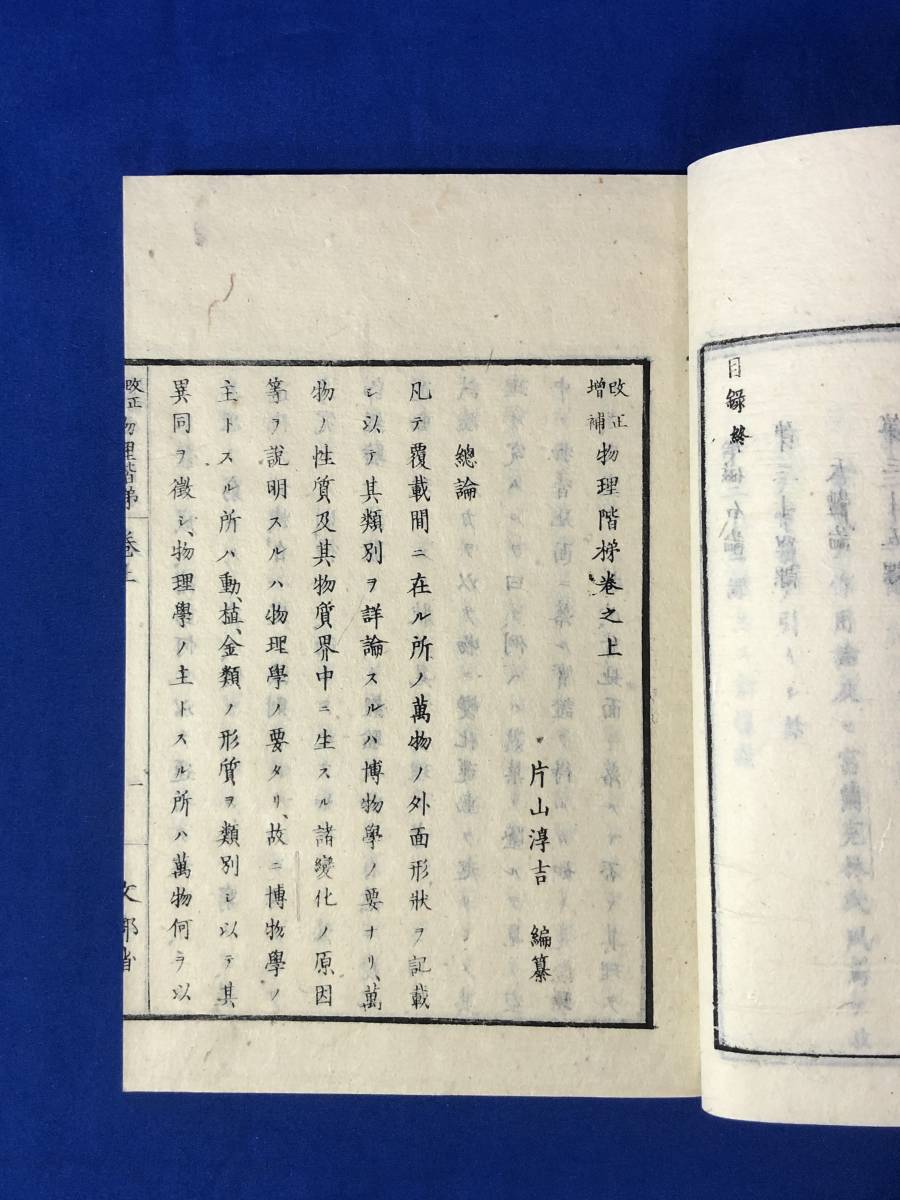 目録終
改正増補物理階梯卷之上
片山淳吉 編纂
總論
凡テ覆載間ニ在ル所ノ萬物ノ外面形狀ヲ記載
シ以テ其類別ヲ詳論スルハ博物學ノ要ナリ、萬
物ノ性質及其物質界中ニ生スル諸變化ノ原因
等ヲ說明スルハ物理學ノ要タリ、故ニ博物學ノ
主トスル所ハ動、植、金類ノ形質ヲ類別シ以テ其
異同ヲ徵シ、物理學ノ主トスル所ハ萬物何ヲ以
改正物理階梯 卷上 一 文部省